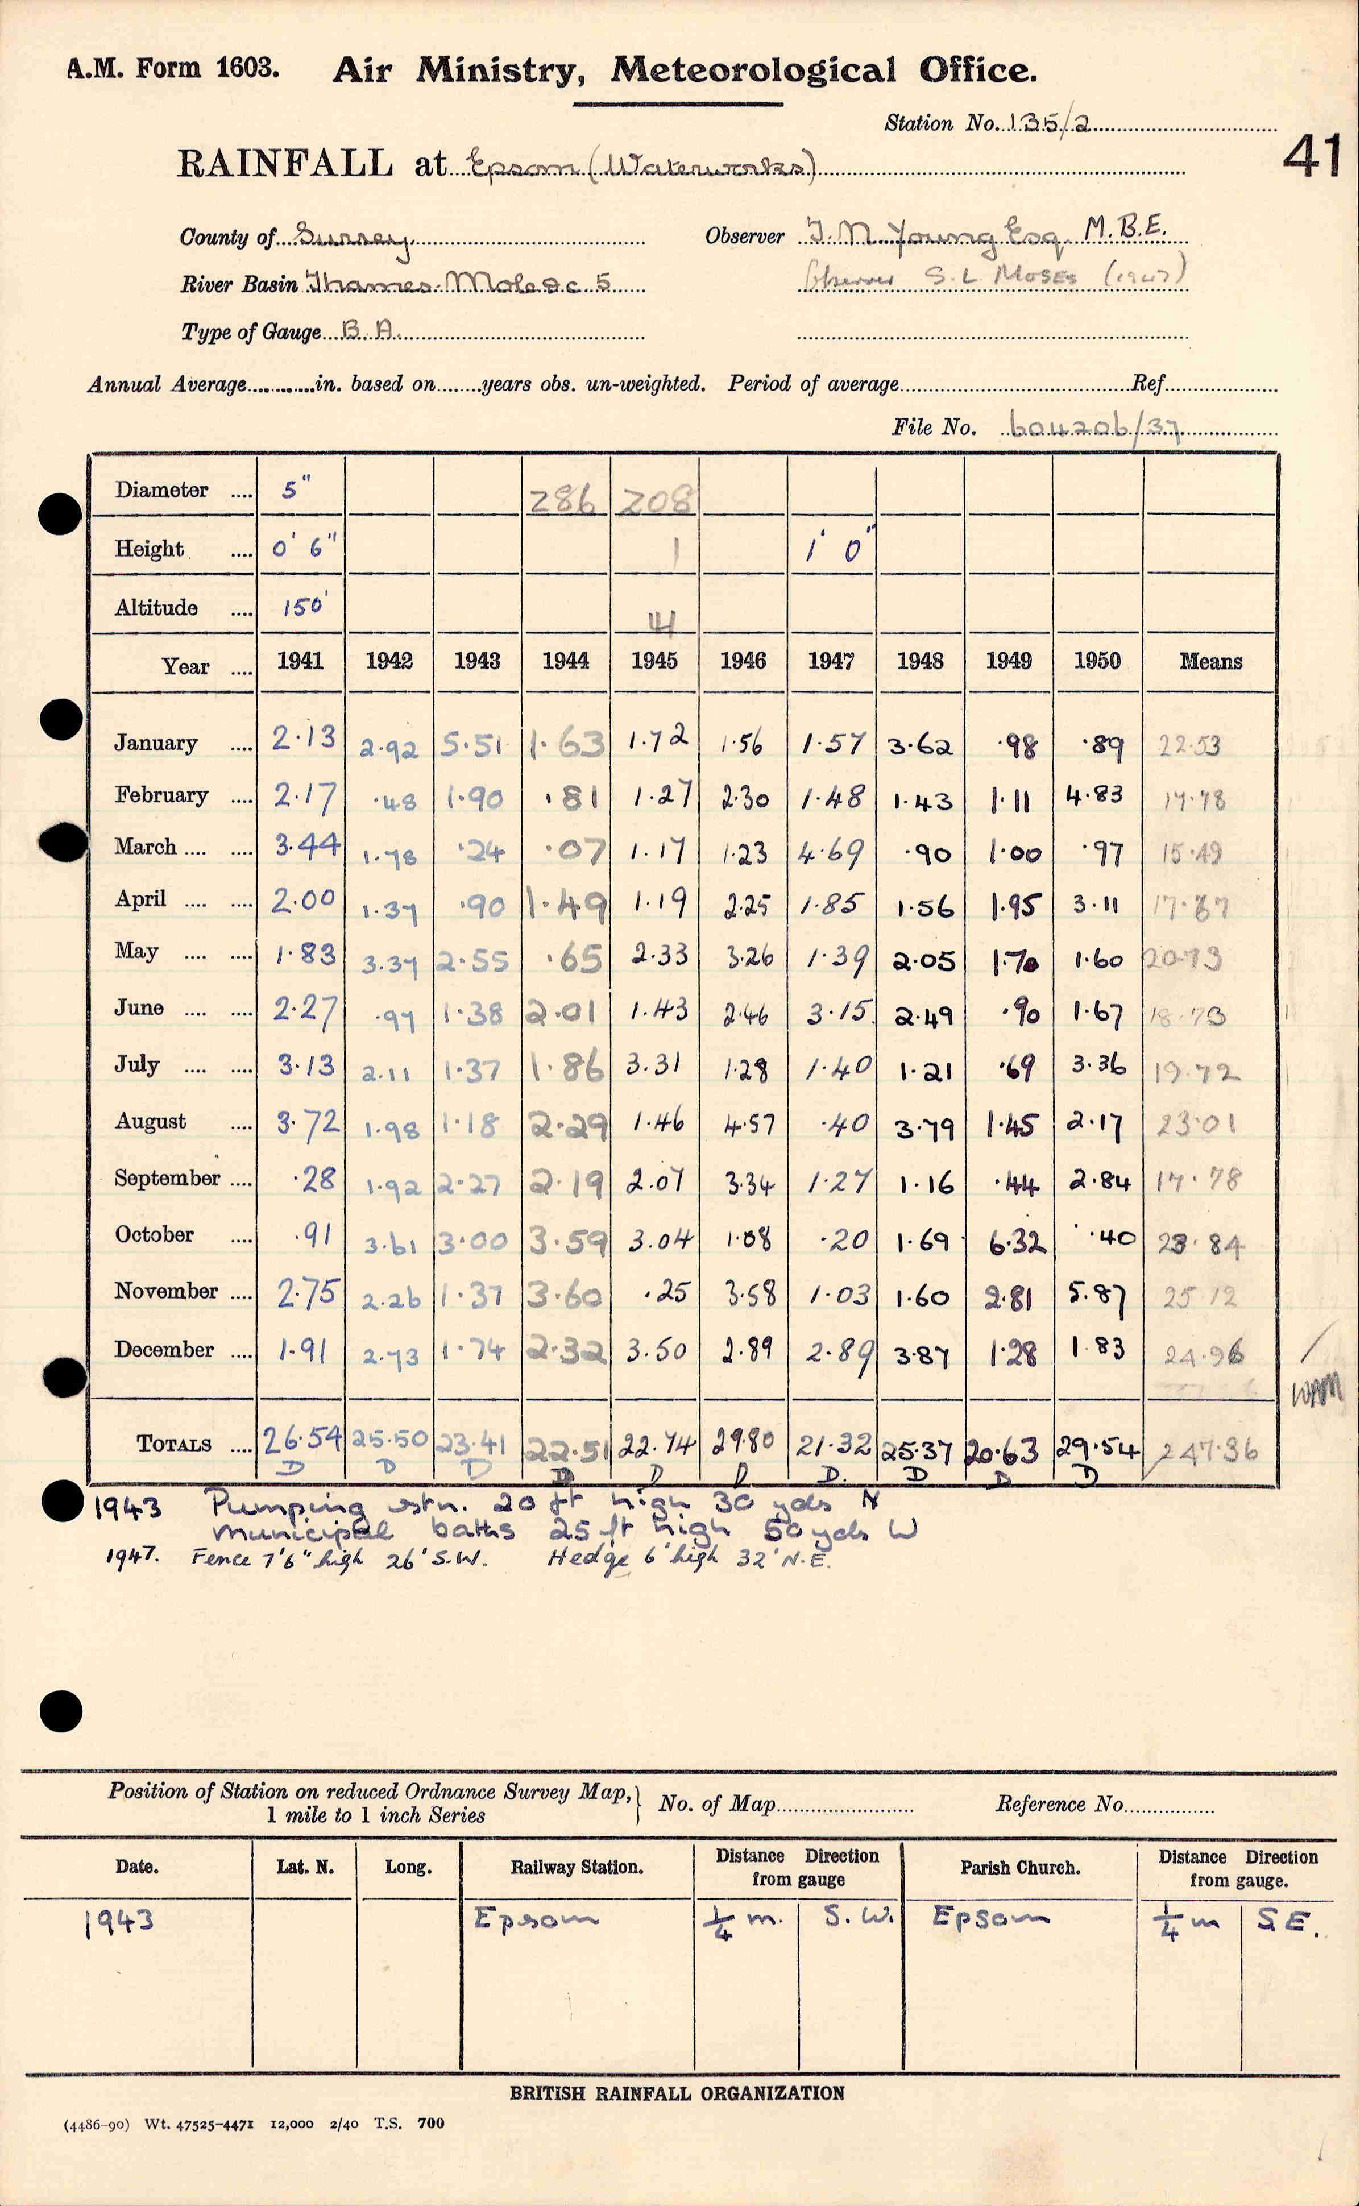 A.M. Form 1603. Air Ministry, Meteorological Office.
Station No. 135/2
41
RAINFALL at Epsom (Waterworks)
County of Surrey Observer T. N. Young Esq. M.B.E.
River Basin Thames. Mole &c 5 Observer S. L MOSES (1947)
Type of Gauge B. A.
Annual Average in. based on years obs. un-weighted. Period of average Ref.
File No. 604206/37
Diameter 5" 286 208
Height 0' 6" 1 1' 0"
Altitude 150'
Year 1941 1942 1943 1944 1945 1946 1947 1948 1949 1950 Means
January 2·13 2·92 5·51 1·63 1·72 1·56 1·57 3·62 ·98 ·89 22·53
February 2·17 ·48 1·90 ·81 1·27 2·30 1·48 1·43 1·11 4·83 17·78
March 3·44 1·78 ·24 ·07 1·17 1·23 4·69 ·90 1·00 ·97 15·49
April 2·00 1·37 ·90 1·49 1·19 2·25 1·85 1·56 1·95 3·11 17·67
May 1·83 3·37 2·55 ·65 2·33 3·26 1·39 2·05 1·70 1·60 20·73
June 2·27 ·97 1·38 2·01 1·43 2·46 3·15 2·49 ·90 1·67 18·73
July 3·13 2·11 1·37 1·86 3·31 1·28 1·40 1·21 ·69 3·36 19·72
August 3·72 1·98 1·18 2·29 1·46 4·57 ·40 3·79 1·45 2·17 23·01
September ·28 1·92 2·27 2·19 2·07 3·34 1·27 1·16 ·44 2·84 17·78
October ·91 3·61 3·00 3·59 3·04 1·08 ·20 1·69 6·32 ·40 23·84
November 2·75 2·26 1·37 3·60 ·25 3·58 1·03 1·60 2·81 5·87 25·12
December 1·91 2·73 1·74 2·32 3·50 2·89 2·89 3·87 1·28 1·83 24·96
WAM
TOTALS 26·54 25·50 23·41 22·51 22·74 29·80 21·32 25·37 20·63 29·54 247·36
D D D D D D D. D D D
1943 Pumping stn. 20 ft high 30 yds N
Municipal baths 25 ft high 50 yds W
1947. Fence 7'6" high 26' S.W. Hedge 6' high 32' N.E.
Position of Station on reduced Ordnance Survey Map, No. of Map Reference No.
1 mile to 1 inch Series
Date. Lat. N. Long. Railway Station. Distance from gauge Direction Parish Church. Distance from gauge. Direction
1943 Epsom ¼ m. S. W. Epsom ¼ m S.E.
BRITISH RAINFALL ORGANIZATION
(4486-90) Wt. 47525-4471 12,000 2/40 T.S. 700